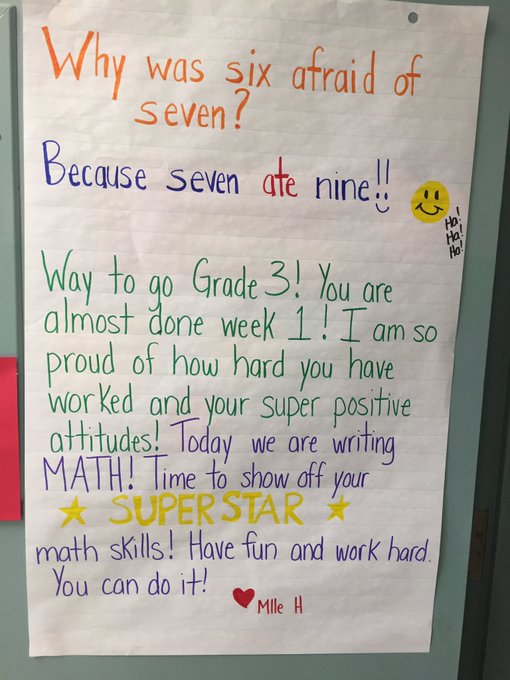 Why was six afraid of
seven?
Because seven ate nine!!
Ha!
Ha!
Ha!
Way to go Grade 3! You are
almost done week 1! I am so
proud of how hard you have
worked and your super positive
attitudes! Today we are writing
MATH! Time to show off your
SUPERSTAR
math skills! Have fun and work hard.
You can do it!
Mlle H